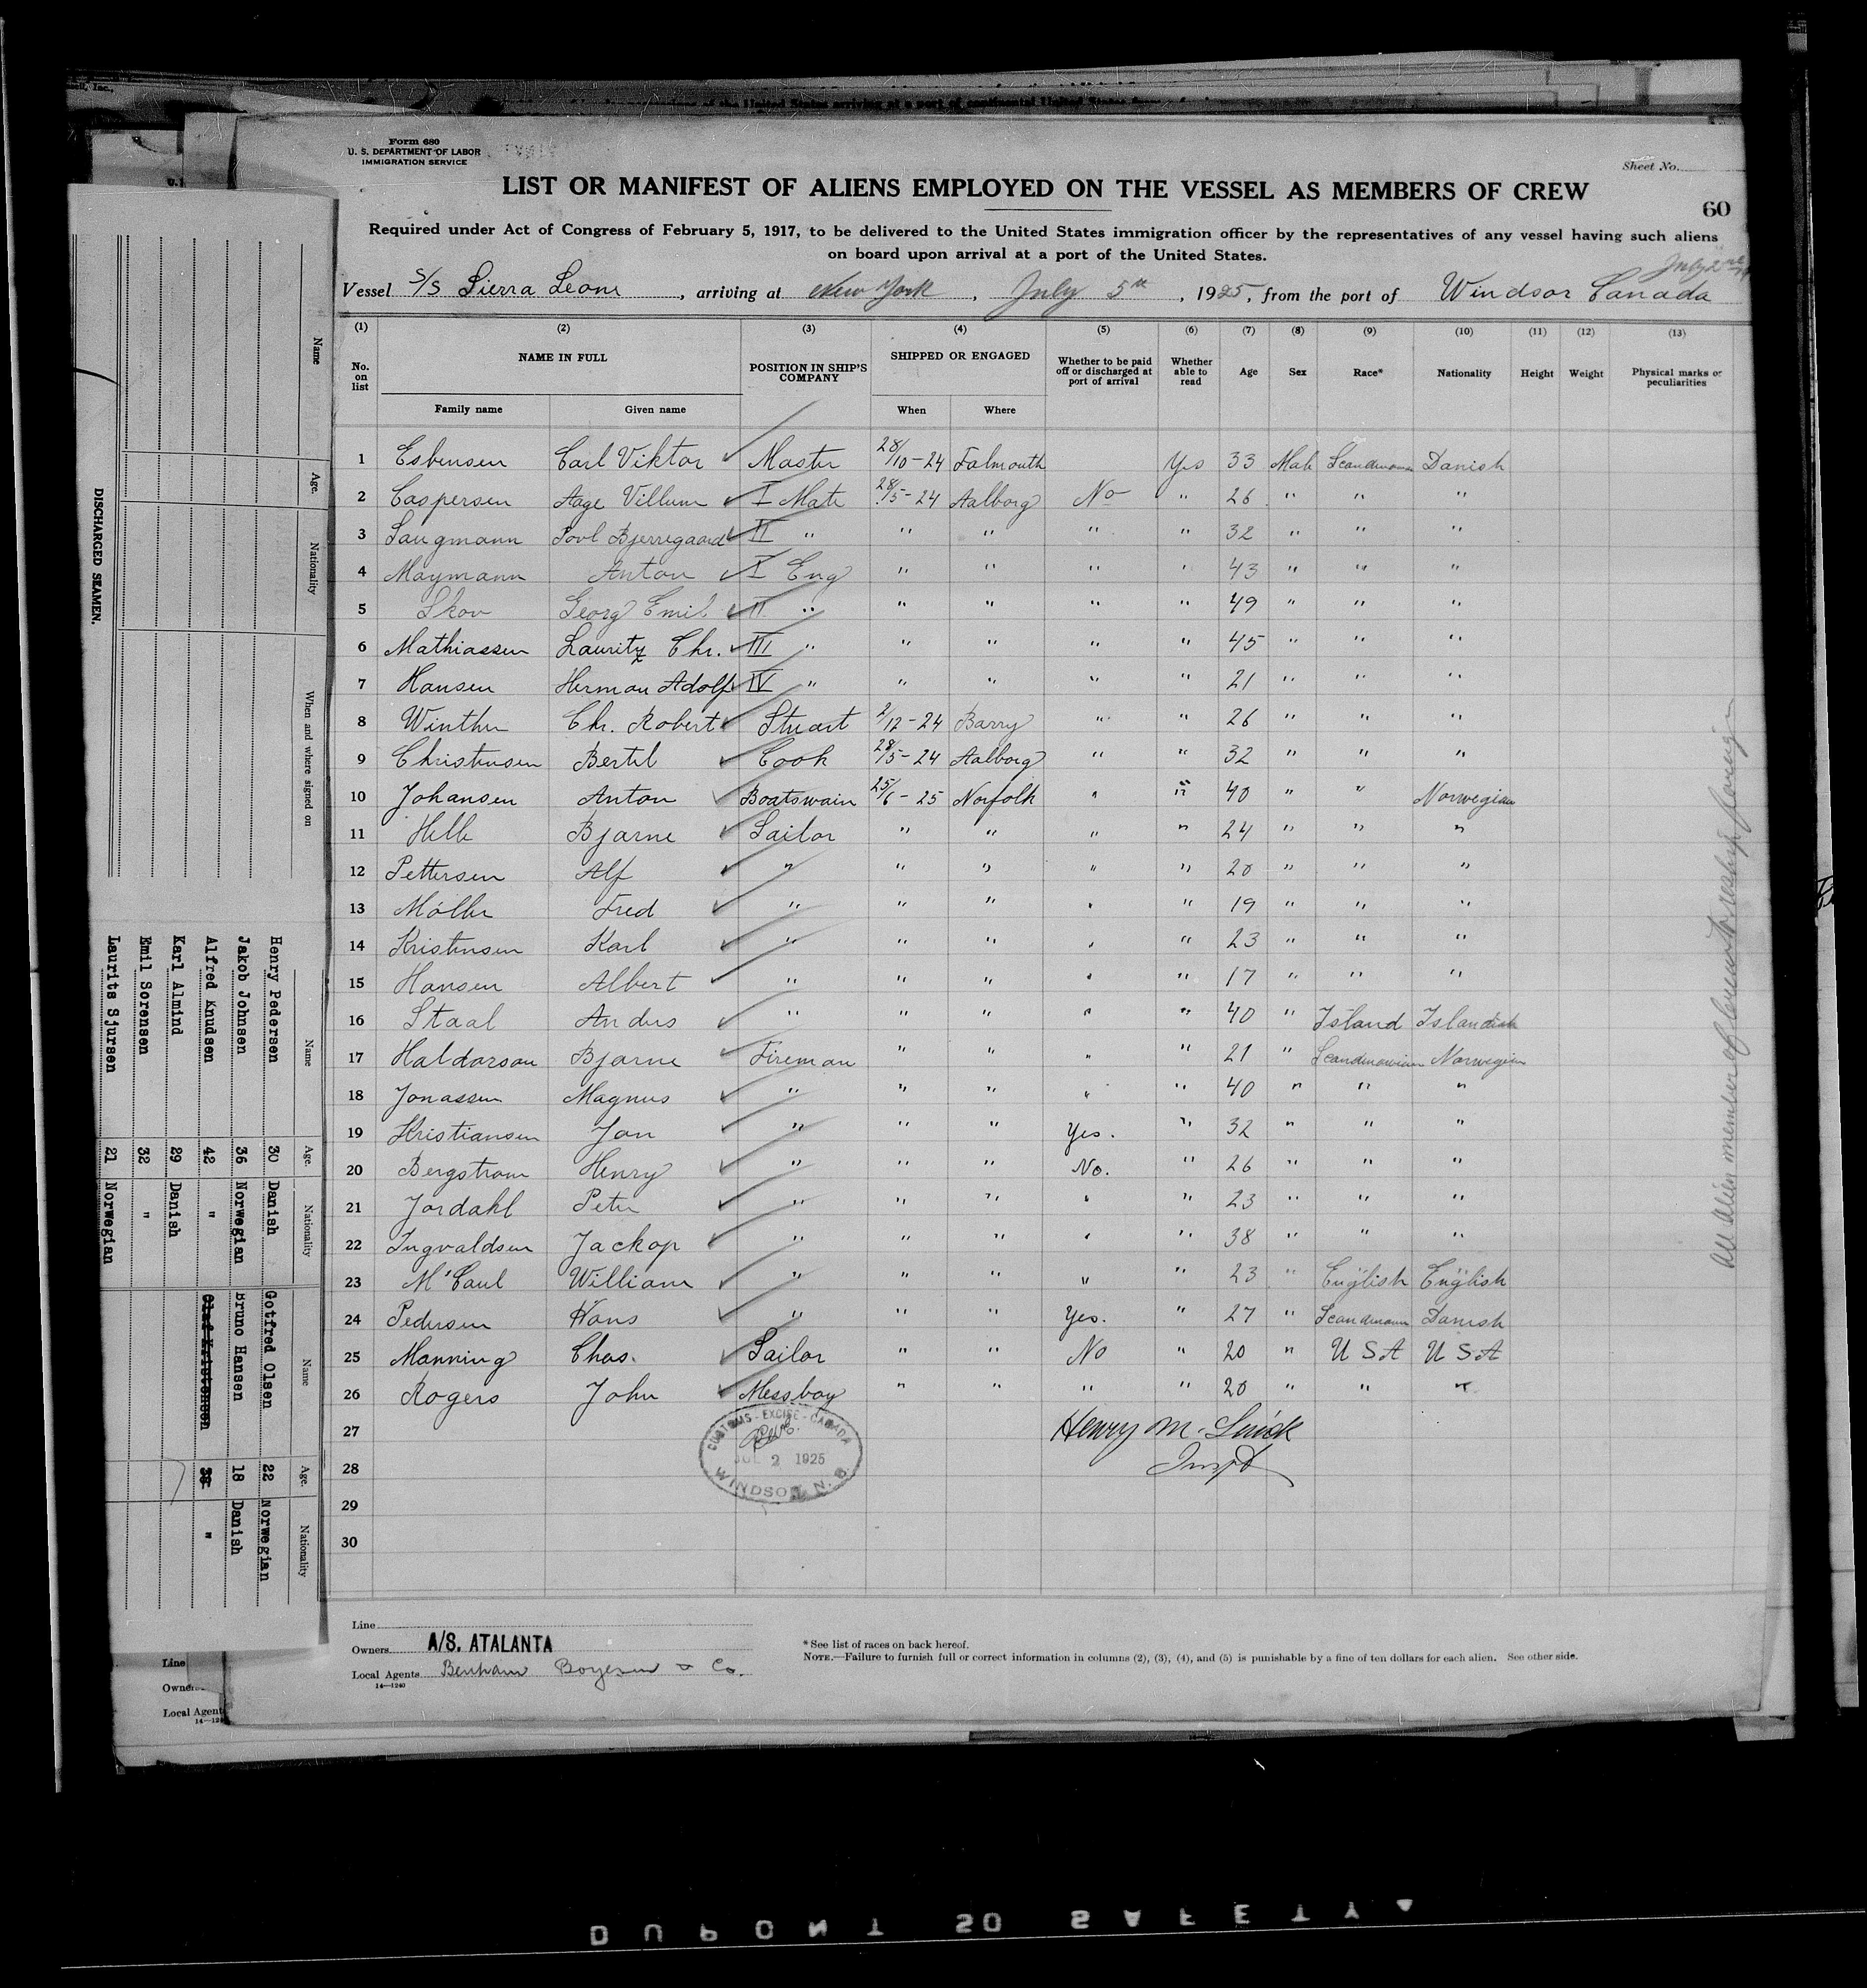 Form 680
U. S. DEPARTMENT OF LABOR
IMMIGRATION SERVICE
Sheet No.
LIST OR MANIFEST OF ALIENS EMPLOYED ON THE VESSEL AS MEMBERS OF CREW
60
Required under Act of Congress of February 5, 1917, to be delivered to the United States immigration officer by the representatives of any vessel having such aliens
on board upon arrival at a port of the United States.
July 2nd
Vessel S/S Sierra Leone, arriving at New York, July 5th, 1925, from the port of Windsor Canada
(1) (2) (3) (4) (5) (6) (7) (8) (9) (10) (11) (12) (13)
No. on list NAME IN FULL POSITION IN SHIP'S COMPANY SHIPPED OR ENGAGED Whether to be paid off or discharged at port of arrival Whether able to read Age Sex Race* Nationality Height Weight Physical marks or peculiarities
Family name Given name When Where
1 Esbensen Carl Viktor Master 28/10-24 Falmouth Yes 33 Male Scandinavian Danish
2 Caspersen Aage Villum I Mate 28/5-24 Aalborg No " 26 " " "
3 Laugmann Povl Bjerregaard II " " " " " 32 " " "
4 Maymann Anton I Eng " " " " 43 " " "
5 Skov Georg Emil II " " " " " 49 " " "
6 Mathiassen Lauritz Chr. III " " " " " 45 " " "
7 Hansen Herman Adolf IV " " " " " 21 " " "
8 Winther Chr. Robert Stuart 2/12-24 Barry " " 26 " " "
9 Christensen Bertil Cook 28/5-24 Aalborg " " 32 " " "
10 Johansen Anton Boatswain 25/6-25 Norfolk " " 40 " " Norwegian
11 Helle Bjarne Sailor " " " " 24 " " "
12 Pettersen Alf " " " " " 20 " " "
13 Möller Fred " " " " " 19 " " "
14 Kristensen Karl " " " " " 23 " " "
15 Hansen Albert " " " " " 17 " " "
16 Staal Anders " " " " " 40 " Island Islandish
17 Haldorson Bjarne Fireman " " " " 21 " Scandinavian Norwegian
18 Jonassen Magnus " " " " " 40 " " "
19 Kristiansen Jon " " " Yes. " 32 " " "
20 Bergstrom Henry " " " No. " 26 " " "
21 Jordahl Peter " " " " " 23 " " "
22 Ingvaldsen Jackop " " " " " 38 " " "
23 M'Caul William " " " " " 23 " English English
24 Pedersen Hans " " " Yes. " 27 " Scandinavian Danish
25 Manning Chas. Sailor " " No " 20 " U S A U S A
26 Rogers John Messboy " " " " 20 " " "
27 Henry M.
28 Inspt
29
30
CUSTOMS - EXCISE - CANADA
JUL 2 1925
WINDSOR, N. S.
Line
Owners A/S. ATALANTA
Local Agents Benham Boyesen & Co.
14—1240
* See list of races on back hereof.
NOTE.—Failure to furnish full or correct information in columns (2), (3), (4), and (5) is punishable by a fine of ten dollars for each alien. See other side.
DISCHARGED SEAMEN.
Name Age. Nationality When and where signed on
Name Age. Nationality Name Age. Nationality
Henry Pedersen 30 Danish Gotfred Olsen 22 Norwegian
Jakob Johnsen 36 Norwegian Bruno Hansen 18 Danish
Alfred Knudsen 42 " Olaf Kristensen 38 "
Karl Almind 29 Danish
Emil Sorensen 32 "
Laurits Sjursen 21 Norwegian
Line
Local Agent
DUPONT SO SAFETY